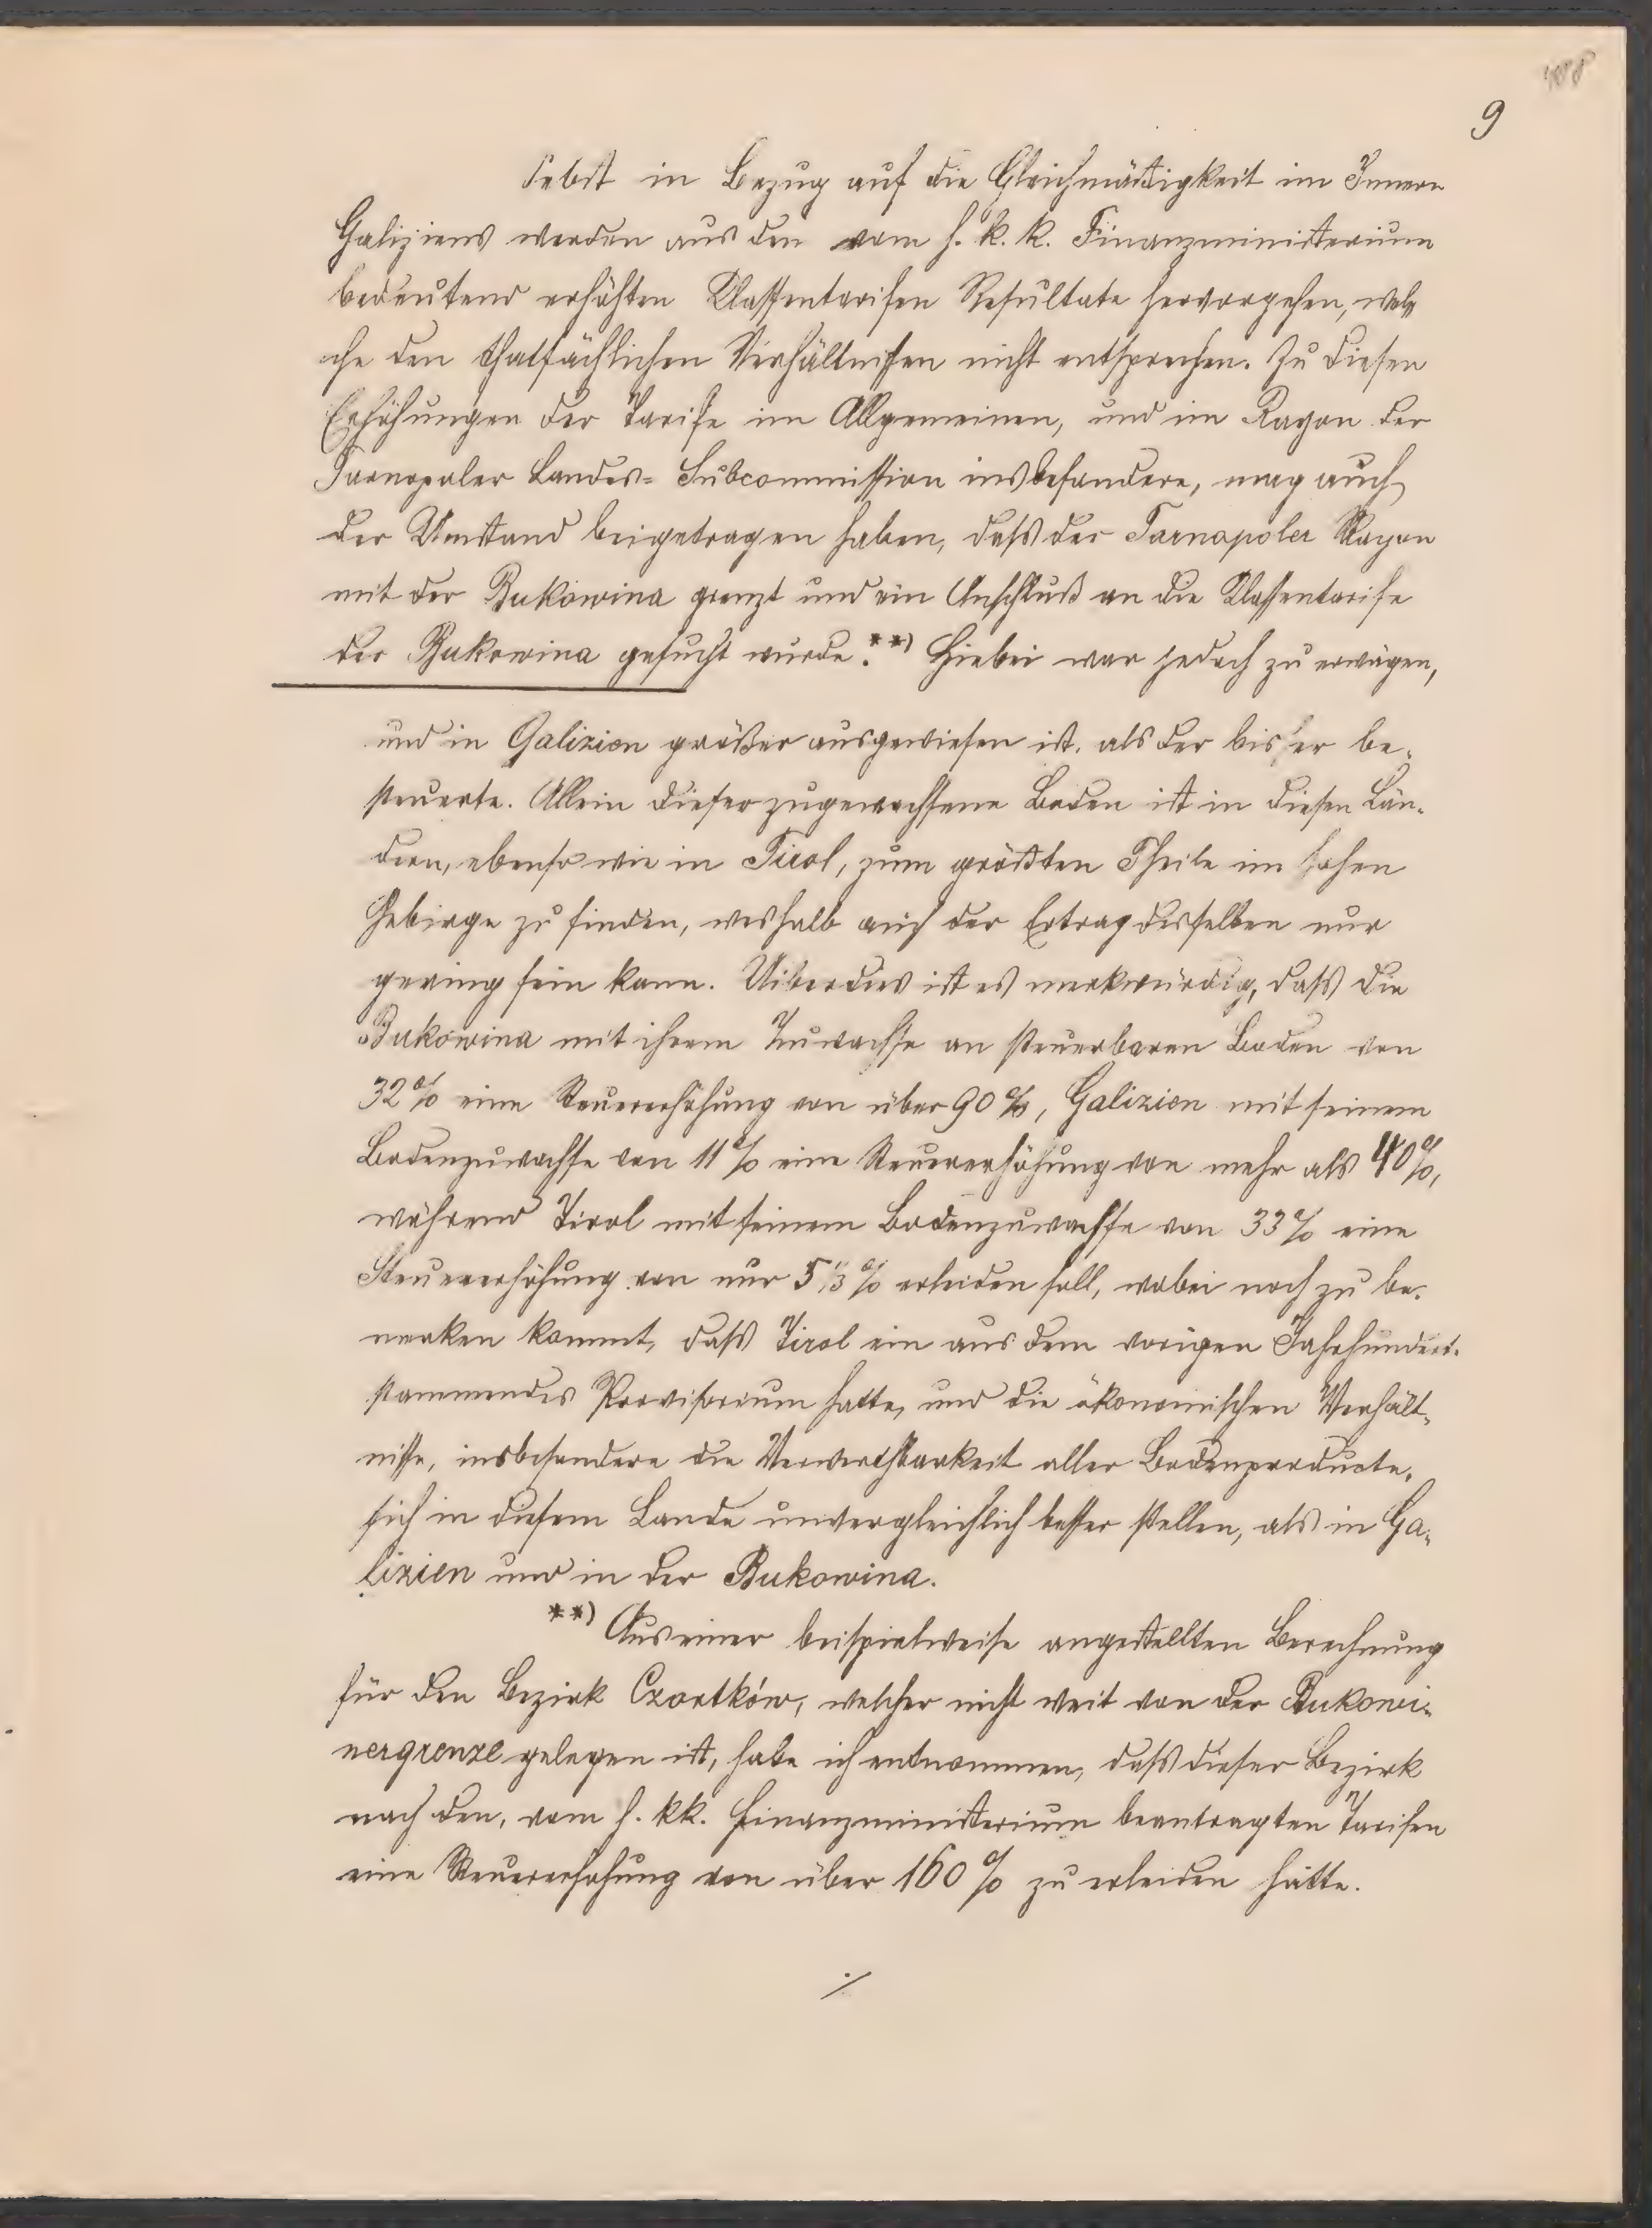 9
Selbst in Bezug auf die Gleichmäßigkeit im Innern
Galiziens werden aus den vom h. k. k. Finanzministerium
bedeutend erhöhten Klassentarifen Resultate hervorgehen, wel
che den thatsächlichen Verhältnissen nicht entsprechen. Zu diesen
Erhöhungen der Tarife im Allgemeinen, und im Rayon der
Tarnopoler Landes-Subcommission insbesondere, mag auch
der Umstand beigetragen haben, daß der Tarnopoler Rayon
mit der Bukowina grenzt und ein Anschluß an die Klassentarife
der Bukowina gesucht wurde.**) Hiebei war jedoch zu erwägen,
und in Galizien größer ausgewiesen ist, als der bisher be-
steuerte. Allein dieser zugewachsene Boden ist in diesen Län-
dern, ebenso wie in Tirol, zum größten Theile im hohen
Gebirge zu finden, weshalb auch der Ertrag desselben nur
gering sein kann. Uiberdies ist es merkwürdig, daß die
Bukowina mit ihrem Zuwachse an steuerbaren Boden von
32% eine Steuererhöhung von über 90%, Galizien mit seinem
Bodenzuwachse von 11% eine Steuererhöhung von mehr als 40%,
während Tirol mit seinem Bodenzuwachse von 33% eine
Steuererhöhung von nur 5 1/3% erleiden soll, wobei noch zu be-
merken kommt, daß Tirol ein aus dem vorigen Jahrhundert
stammendes Provisorium hatte, und die ökonomischen Verhält-
nisse, insbesondere die Verwerthbarkeit aller Bodenproducte,
sich in diesem Lande unvergleichlich besser stellen, als in Ga-
lizien und in der Bukowina.
**) Aus einer beispielweise angestellten Berechnung
für den Bezirk Czortków, welcher nicht weit von der Bukowi-
nergrenze gelegen ist, habe ich entnommen, daß dieser Bezirk
nach den, vom h. kk. Finanzministerium beantragten Tarifen
eine Steuererhöhung von über 160% zu erleiden hätte.
./.